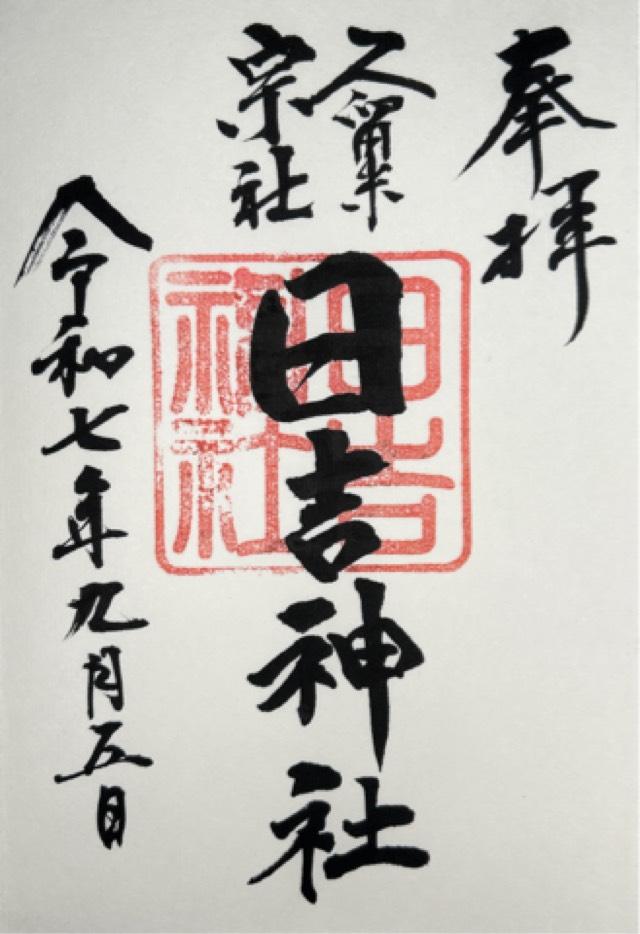 奉拝
久留米
宗社
日吉神社
日吉
神社
令和七年九月五日